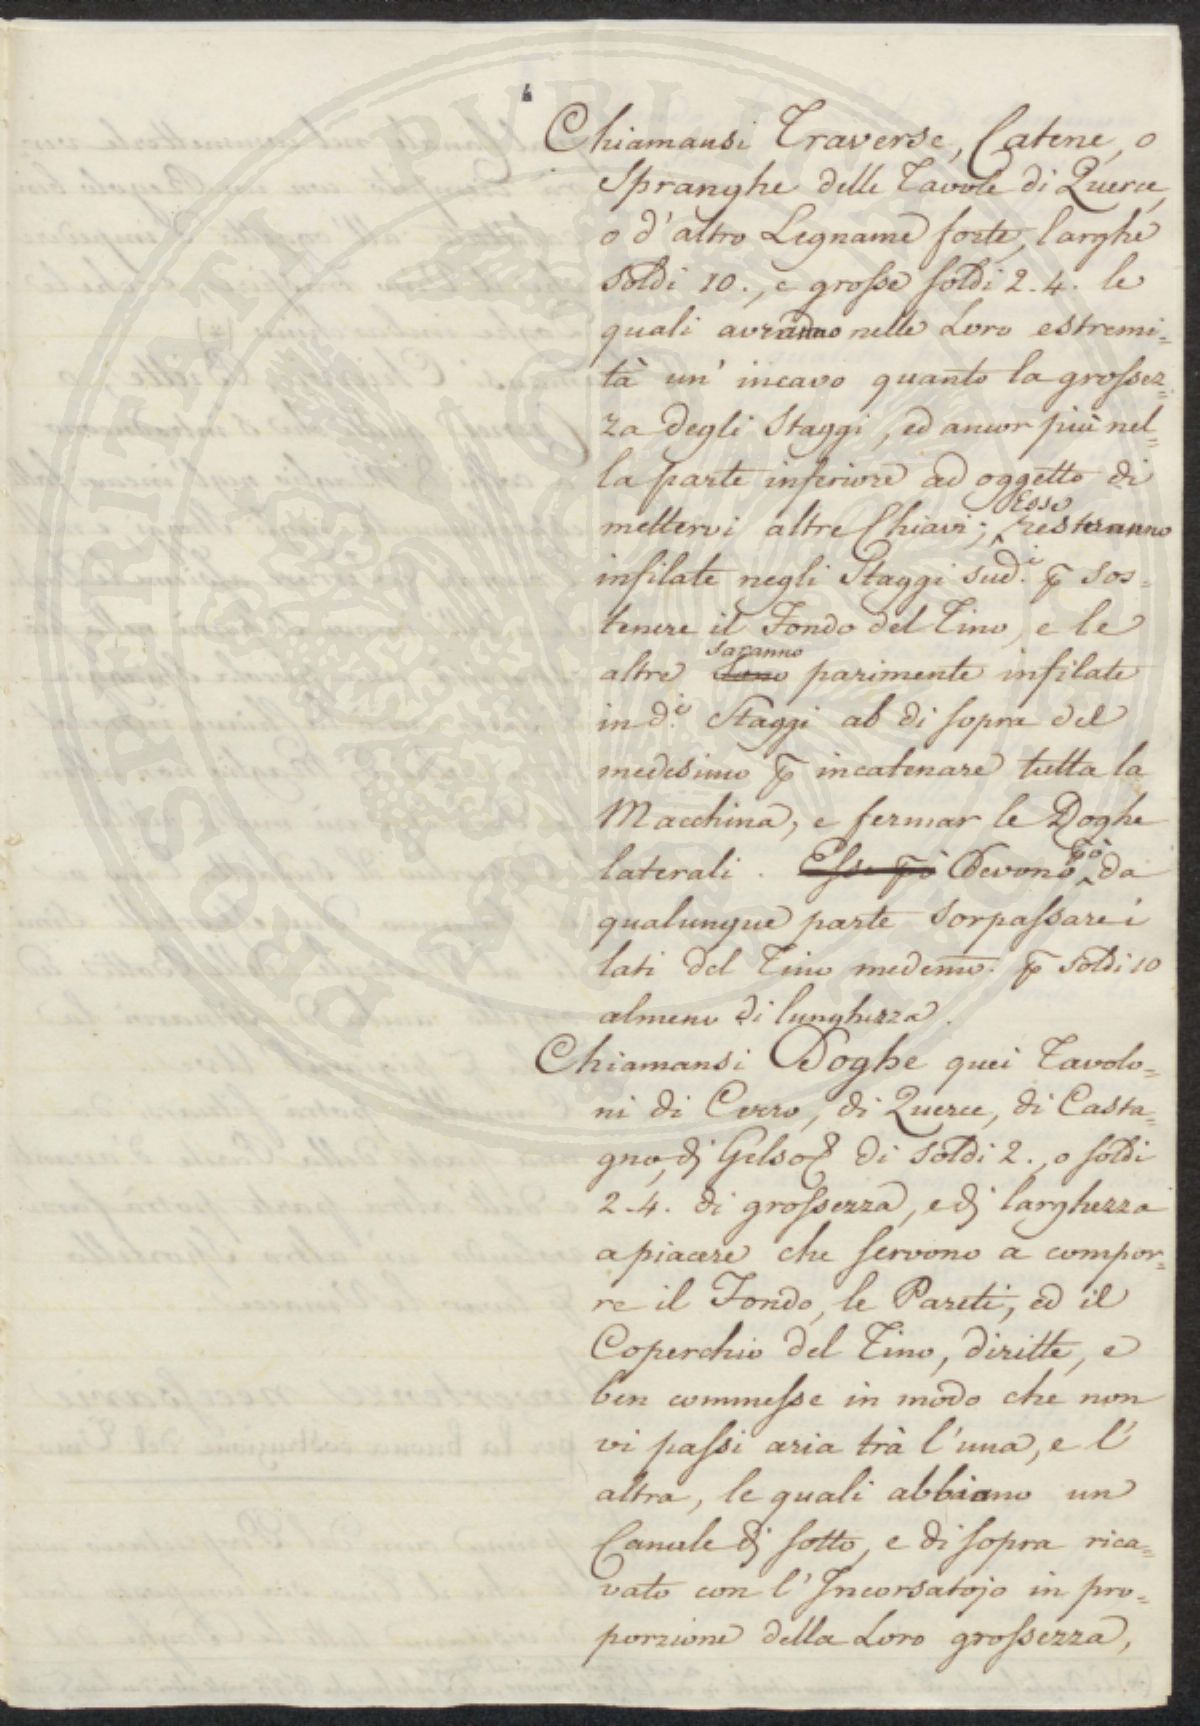 Chiamansi Traverse, Catene, o
Spranghe delle Tavole di Querce,
o d'altro Legname forte, larghe
soldi 10., e grosse soldi 2.4. le
quali avranno nelle Loro estremi=
tà un' incavo quanto la grossez=
za degli Staggi, ed ancor più nel=
la parte inferiore ad oggetto di
mettervi altre Chiavi; Esse resteranno
infilate negli Staggi sud.i p sos=
tenere il Fondo del Tino, e le
altre saranno parimente infilate
in d.i Staggi al di sopra del
medesimo p incatenare tutta la
Macchina, e fermar le Doghe
laterali. Esse pò Devono pò da
qualunque parte sorpassare i
lati del Tino medemo. p soldi 10
almeno di lunghezza.
Chiamansi Doghe quei Tavolo=
ni di Cerro, di Querce, di Casta=
gno, di Gelso & di soldi 2., o soldi
2.4. di grossezza, e di larghezza
a piacere che servono a compor=
re il Fondo, le Pareti, ed il
Coperchio del Tino, diritte, e
ben commesse in modo che non
vi passi aria trà l'una, e l'
altra, le quali abbiano un
Canale di sotto, e di sopra rica=
vato con l'Incorsatojo in pro=
porzione della Loro grossezza,
PROSPERITATI PVBLICAE